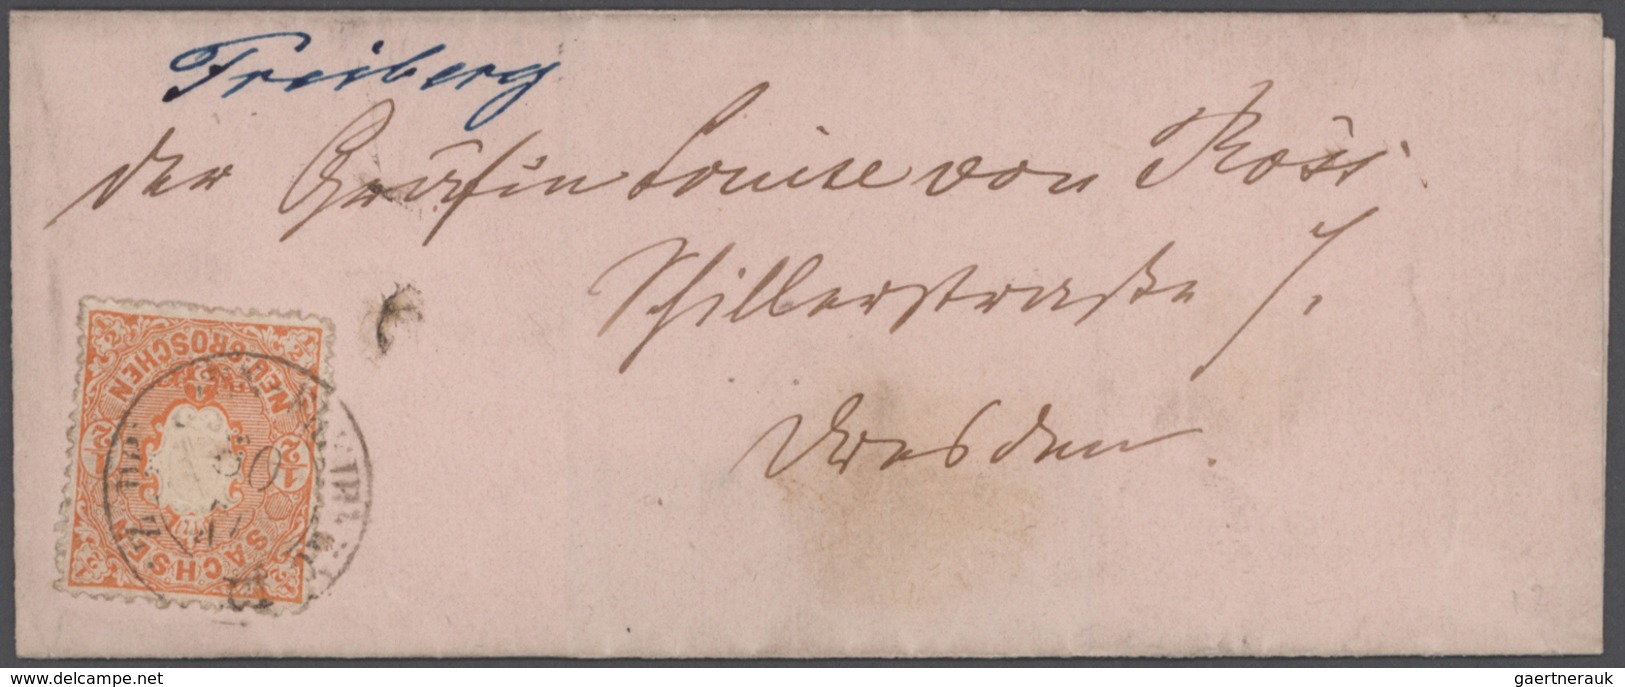 Freiberg
der Gräfin Louise von Ross
Schillerstraße 7.
Dresden.
NEU-GROSCHEN
1/2
1/2
SACHSEN
delcampe.net
gaertnerauk